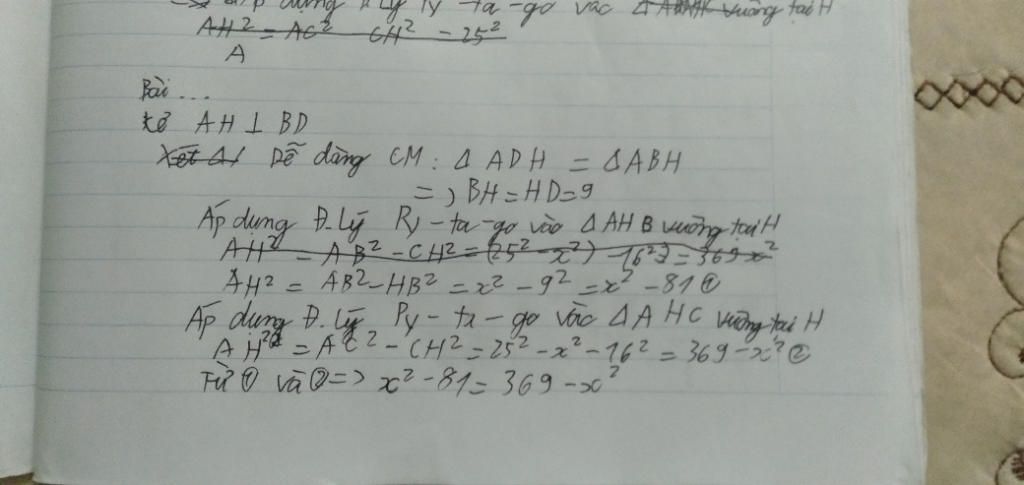 áp dụng Đ.Lý Py-ta-go vào vuông tại H
AH² = AC² CH² - 25²
A
Bài...
kẻ AH ⊥ BD
Xét Δ Dễ dàng CM: Δ ADH = Δ ABH
=) BH = HD = 9
Áp dung Đ.lý Py-ta-go vào Δ AHB vuông tại H
AH² = AB² - CH² = (25² - x²) - 16² = 369 x²
AH² = AB² - HB² = x² - 9² = x² - 81 ①
Áp dung Đ.lý Py-ta-go vào Δ AHC vuông tại H
AH² = AC² - CH² = 25² - x² - 16² = 369 - x² ②
Từ ① và ② => x² - 81 = 369 - x²